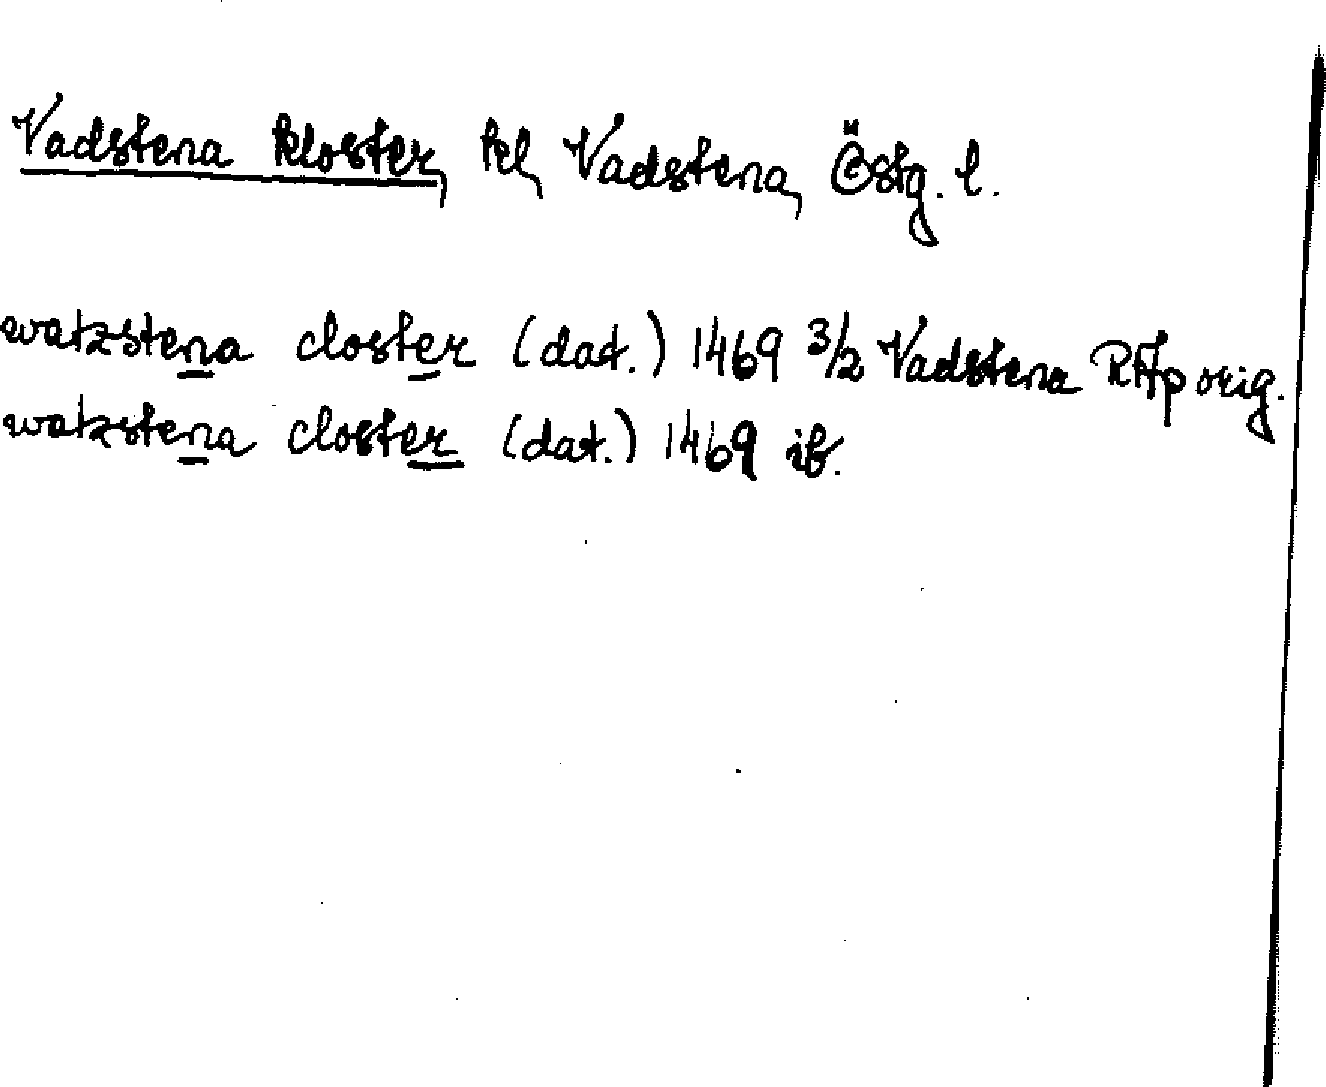 Vadstena kloster, kl, Vadstena, Östg. l.
watzstena closter (dat.) 1469 3/2 Vadstena RAp orig.
watzstena closter (dat.) 1469 ib.